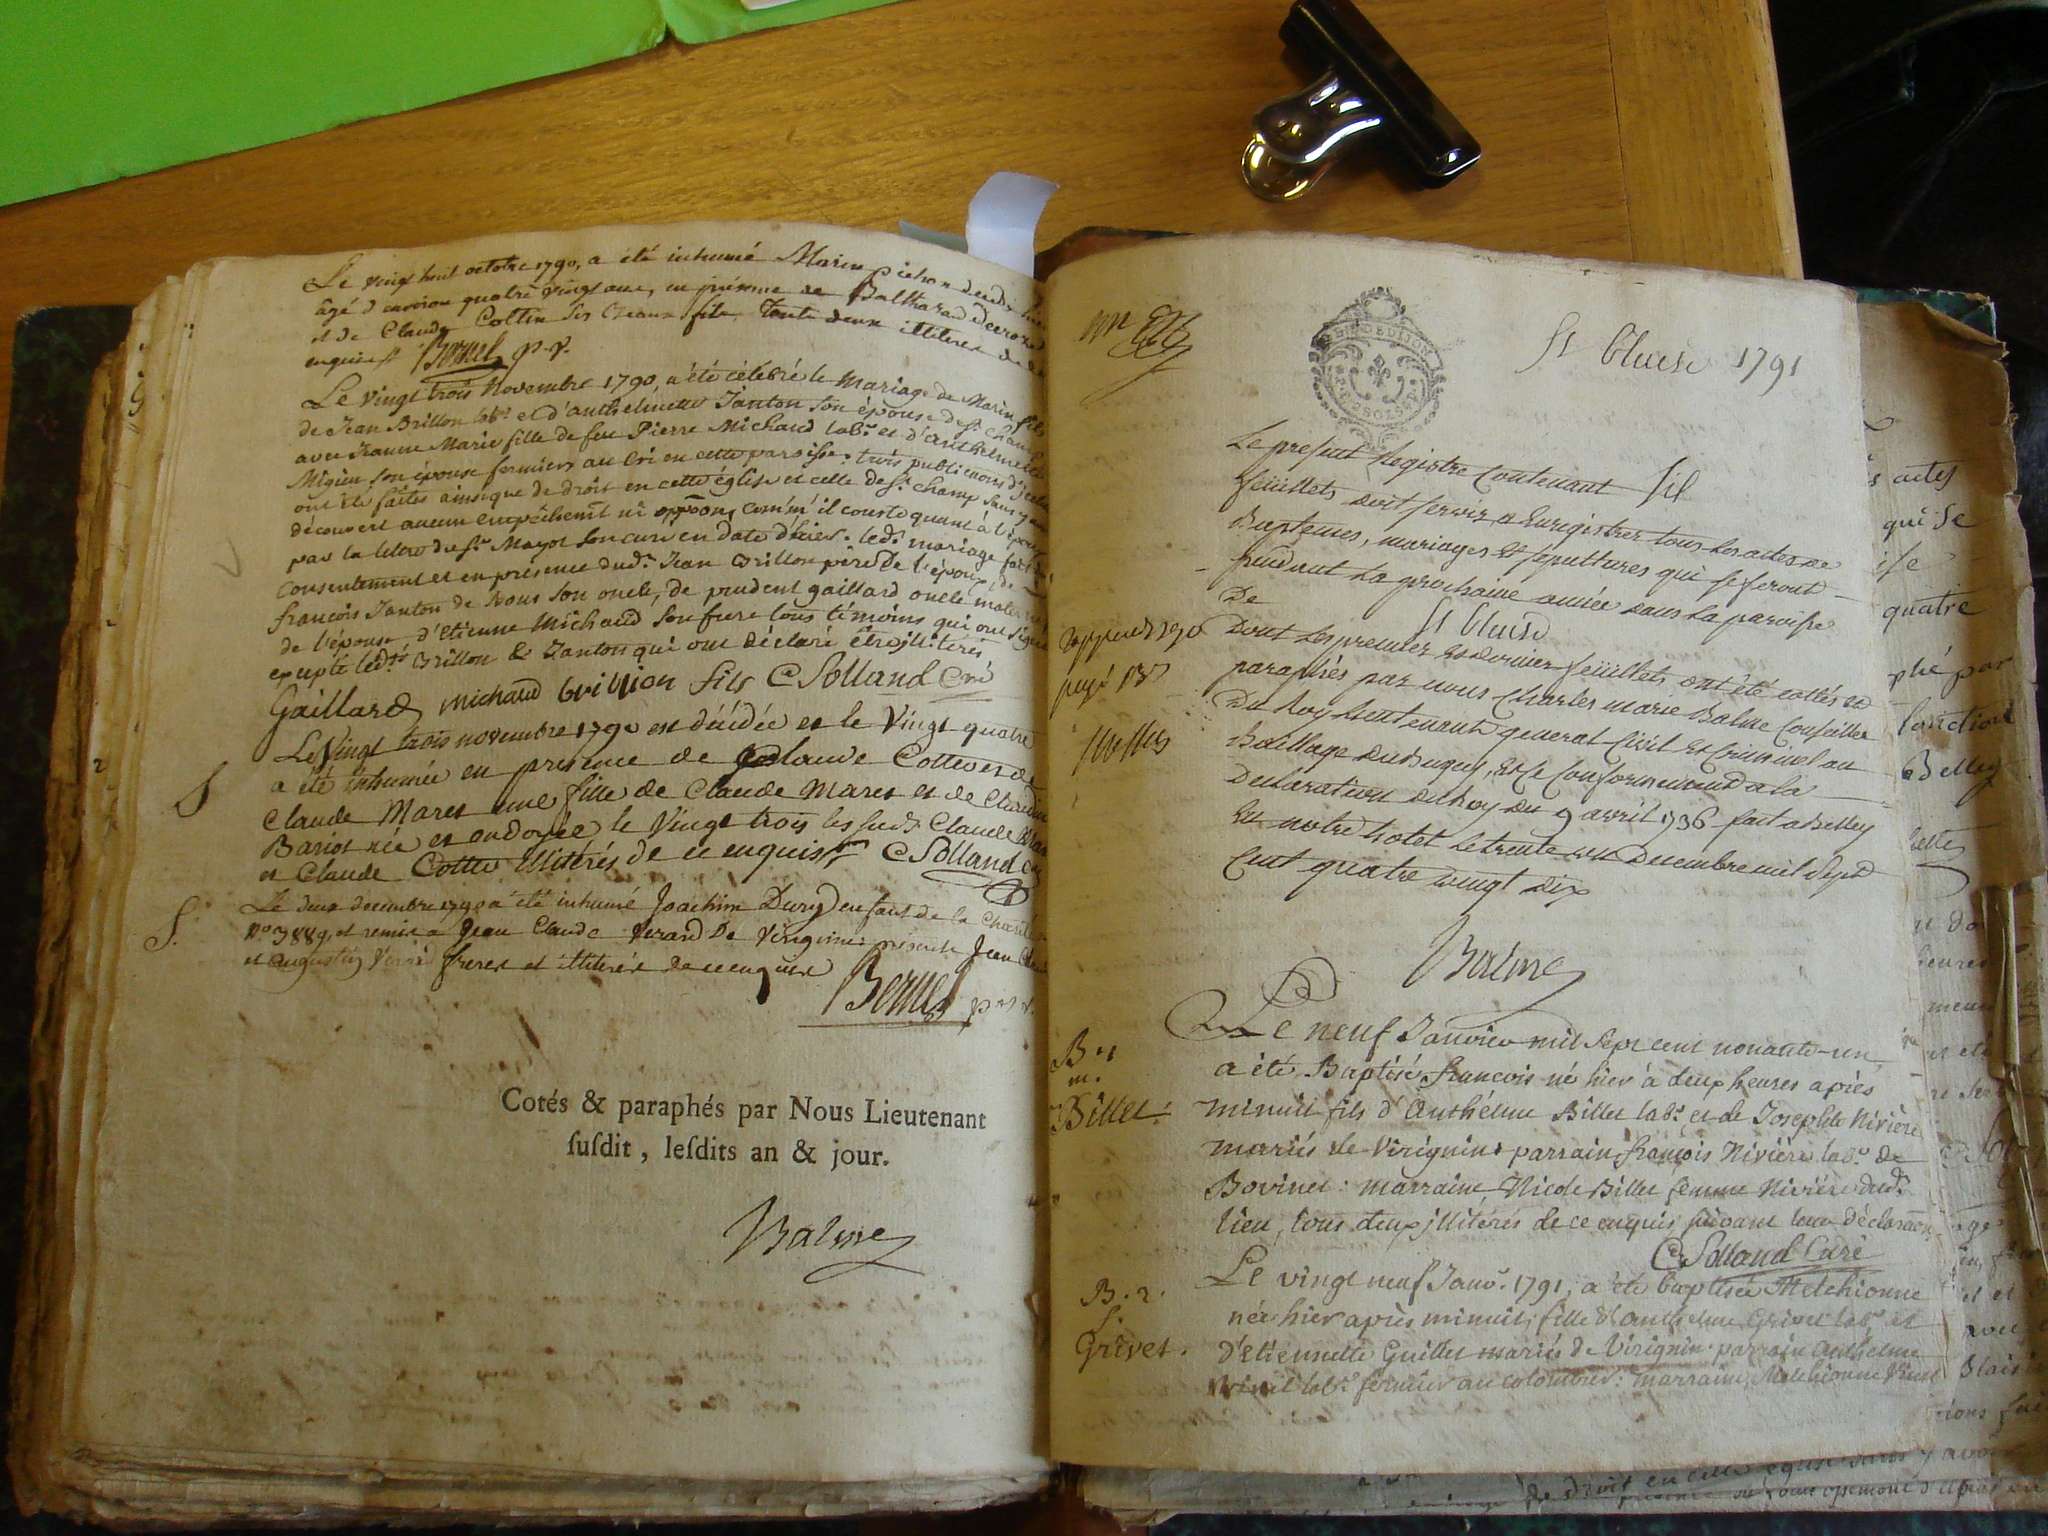 Le vingt huit octobre 1790, a été inhumé Marin pichon
âgé d'environ quatre vingt ans, en présence de Balthazard
et de Claude Cottin ses beaux fils, toute deux illiteres de
enquis Bernel p. v.
Le vingt trois Novembre 1790, a été célébré le mariage de Marin fils
de Jean Brillon lab.r et d'anthelmette Janton son épouse de st. champ
avec Jeanne Marie fille de feu Pierre Michaud lab.r et d'anthelmette
Migieu son épouse fermiers au lri en cette paroisse. trois publications d'icelui
ont été faites ainsique de droit en cette église et celle de st. champ sans y avoir
découvert aucun empêchemt. ni oppôon, comm' il conste quant à l'époux
par la lettre du sr. Mayot son curé en date d'hier. led.t mariage fait du
consentement et en présence dud.t Jean Brillon père de l'époux, de
françois Janton de Nous son oncle, de prudent gaillard oncle maternel
de l'épouse, d'etienne Michaud son frere tous témoins qui ont signé
excepté led.ts Brillon & Janton qui ont déclaré être illitérés
Gaillard michaud brillion fils C Solland Curé
Le Vingt trois novembre 1790 est décédée et le Vingt quatre
a été inhumée en presence de Claude Cottin et de
Claude Maret une fille de Claude Maret et de Claudine
Bariot née et ondoyée le Vingt trois les susd.ts Claude Maret
et Claude Cottin illitérés de ce enquis C Solland Curé
S
S.
Le deux decembre 1790 a été inhumé Joachim Dury enfant de la Charité
no. 3889, et remis a Jean Claude Verard De Virignin: présents Jean
et augustin freres et illiterés de ce enquis
Bernel p. v.
Cotés & paraphés par Nous Lieutenant
ſuſdit, leſdits an & jour.
Balme
St bluise 1791
Le present Registre Contenant six
feüillets doit servir a Enregistrer tous les actes de
Baptemes, mariages et sépultures qui se feront
pendant la prochaine année dans la paroisse
De St bluise
Dont les premier et dernier feüillets ont été cottés et
paraphés par nous Charles marie Balme Conseiller
Du Roy Lieutenant general Civil et Criminel au
Baillage du Bugey, et se Conformeront a la
Declaration du Roy du 9 avril 1736 fait a Belley
En notre hotel le trente un Decembre mil sept
Cent quatre vingt dix
Balme
B 1
m.
Billet.
Le neuf Janvier mil sept cent nonante-un
a été Baptisé francois né hier à deux heures après
minuit fils d'Anthelme Billet lab.r et de Josephte Nivière
mariés de Virignin. parrain françois Nivière lab.r de
Bovinel: marraine Nicole Billet femme Nivière dud.t
lieu, tous deux illitérés de ce enquis suivant leur déclaration
C Solland Curé
B. 2.
f.
Grivet.
Le vingt neuf Janv.r 1791, a été baptisée Melchionne
née hier après minuit, fille d'anthelme Grivet lab.r et
d'etiennette Guillet mariés de Virignin. parrain Anthelme
lab.r fermier au colombier: marraine Melchionne
actes
qui se
quatre
phé par
Belley